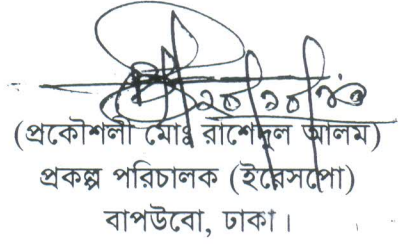 (প্রকৌশলী মোঃ রাশেদুল আলম)
প্রকল্প পরিচালক (ইরেসপো)
বাপউবো, ঢাকা।